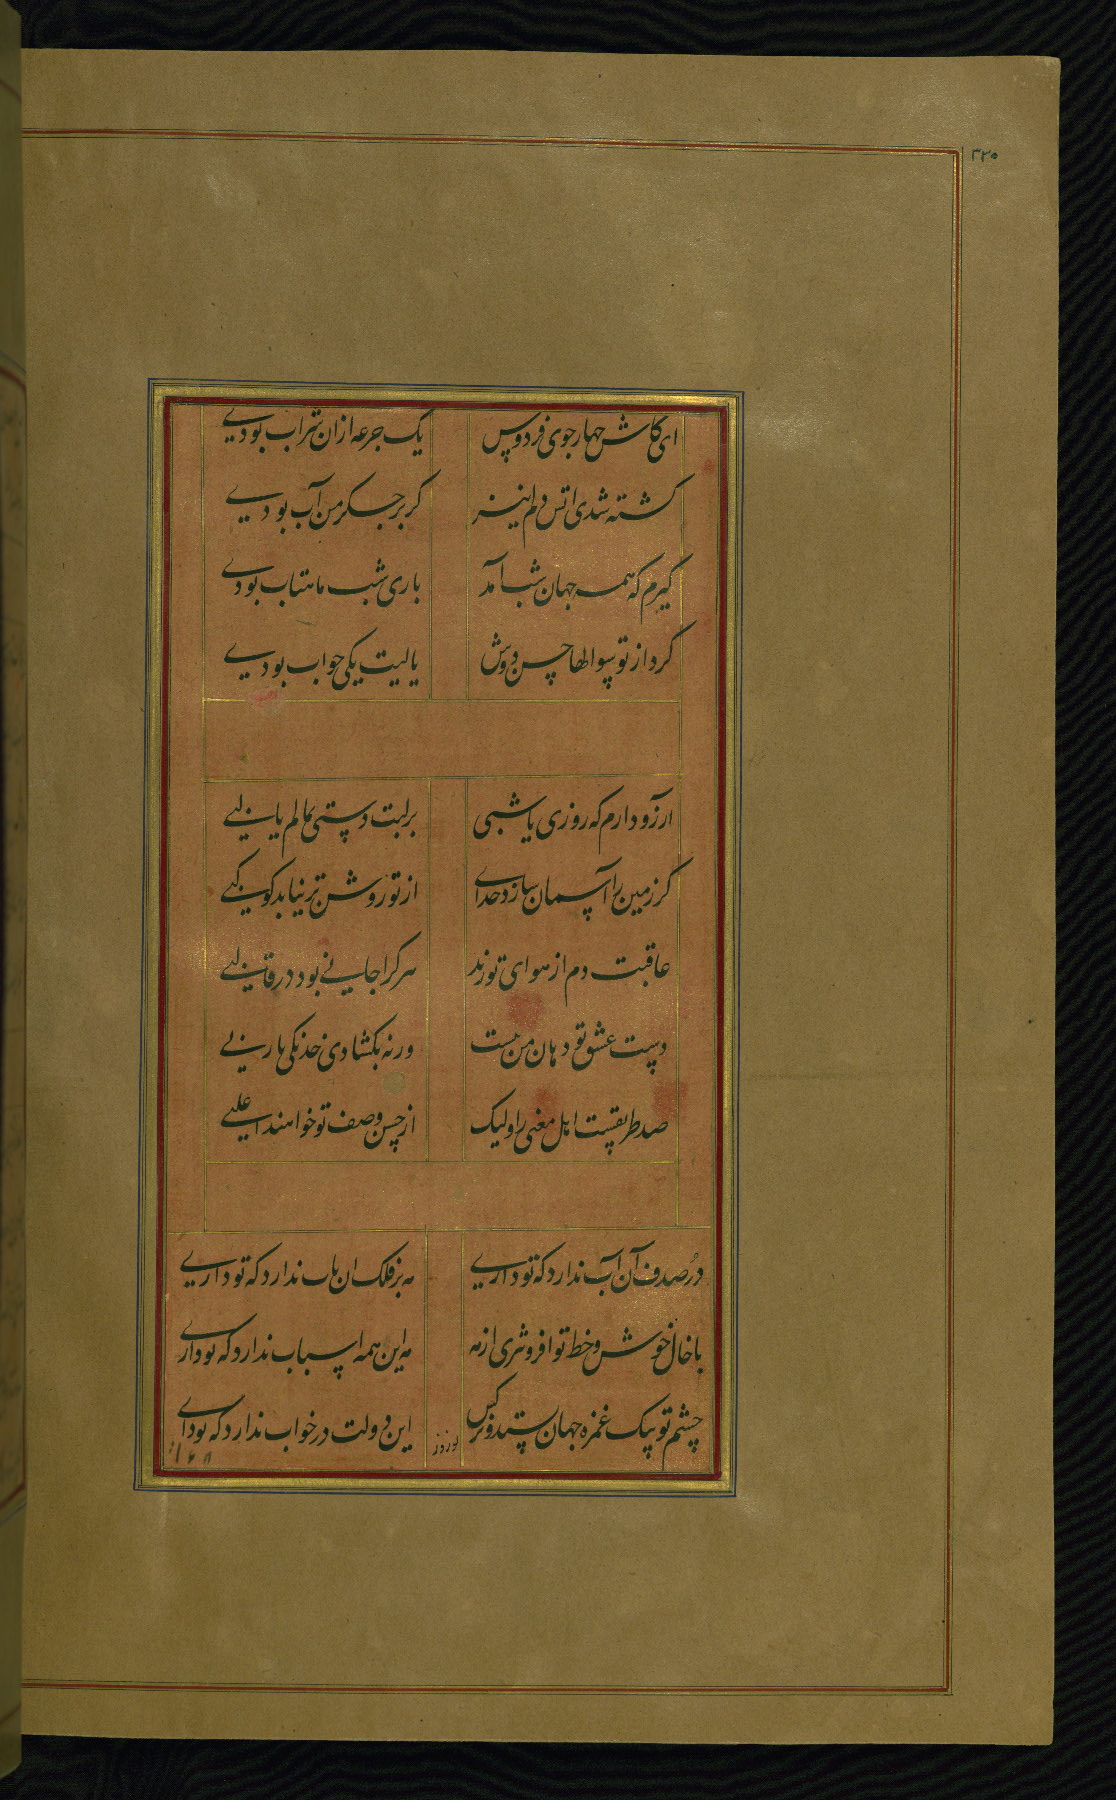 ۳۳۵
ای کاش چهار جوی فردوس یک جرعه ازان شراب بودی
کشته شدی اتش دلم نیز کر بر جکر من آب بودی
کیرم که همه جهان شب آمد باری شب ماهتاب بودی
کرد از تو سوالها حسن دوش یا لیت یکی جواب بودی
ارزو دارم که روزی یا شبی بر لبت دستی بمالم یا لبی
کر زمین را آسمان سازد خدای از تو روشن تر نیابد کوکبی
عاقبت دم از هوای تو زند هر کرا جانی بود در قالبی
دست عشق تو دهان من ببست ورنه بکشادی خدنکی یا ربی
صد طریقست اهل معنی را ولیک از حسن وصف تو خواهند اغلبی
در صدف آن آب ندارد که تو داری مه بر فلک ان تاب ندارد که تو داری
با خال خوش و خط تو افروتری از مه مه این همه اسباب ندارد که تو داری
چشم تو بیک غمزه جهان بستد و نرکس این دولت در خواب ندارد که تو داری